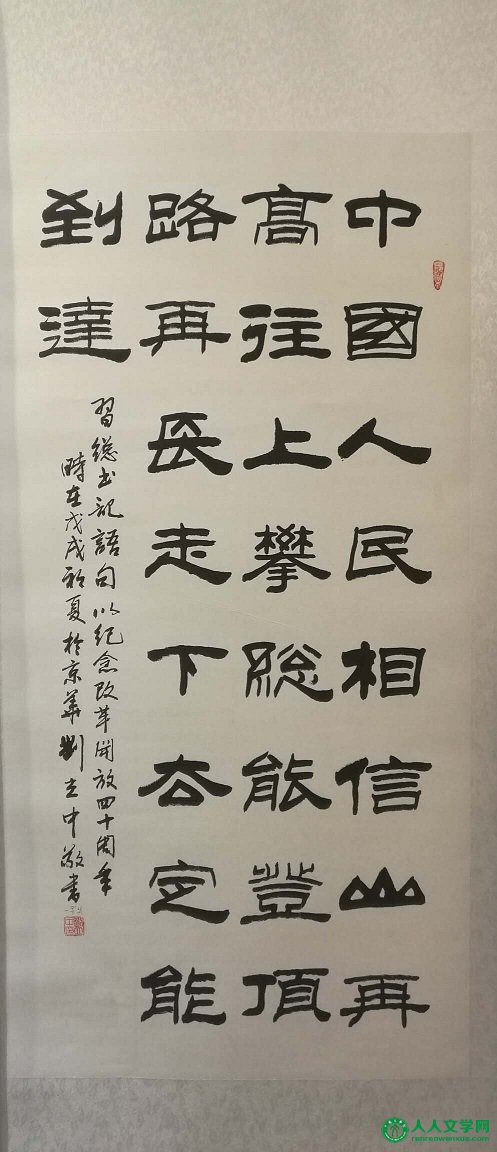 中國人民相信山再
髙往上攀緫能登頂
路再長走下去定能
到達
習総书記語句以纪念改革開放四十周年
時在戊戌初夏於京華劉立中敬書
人人文学网
renrenwenxue.com